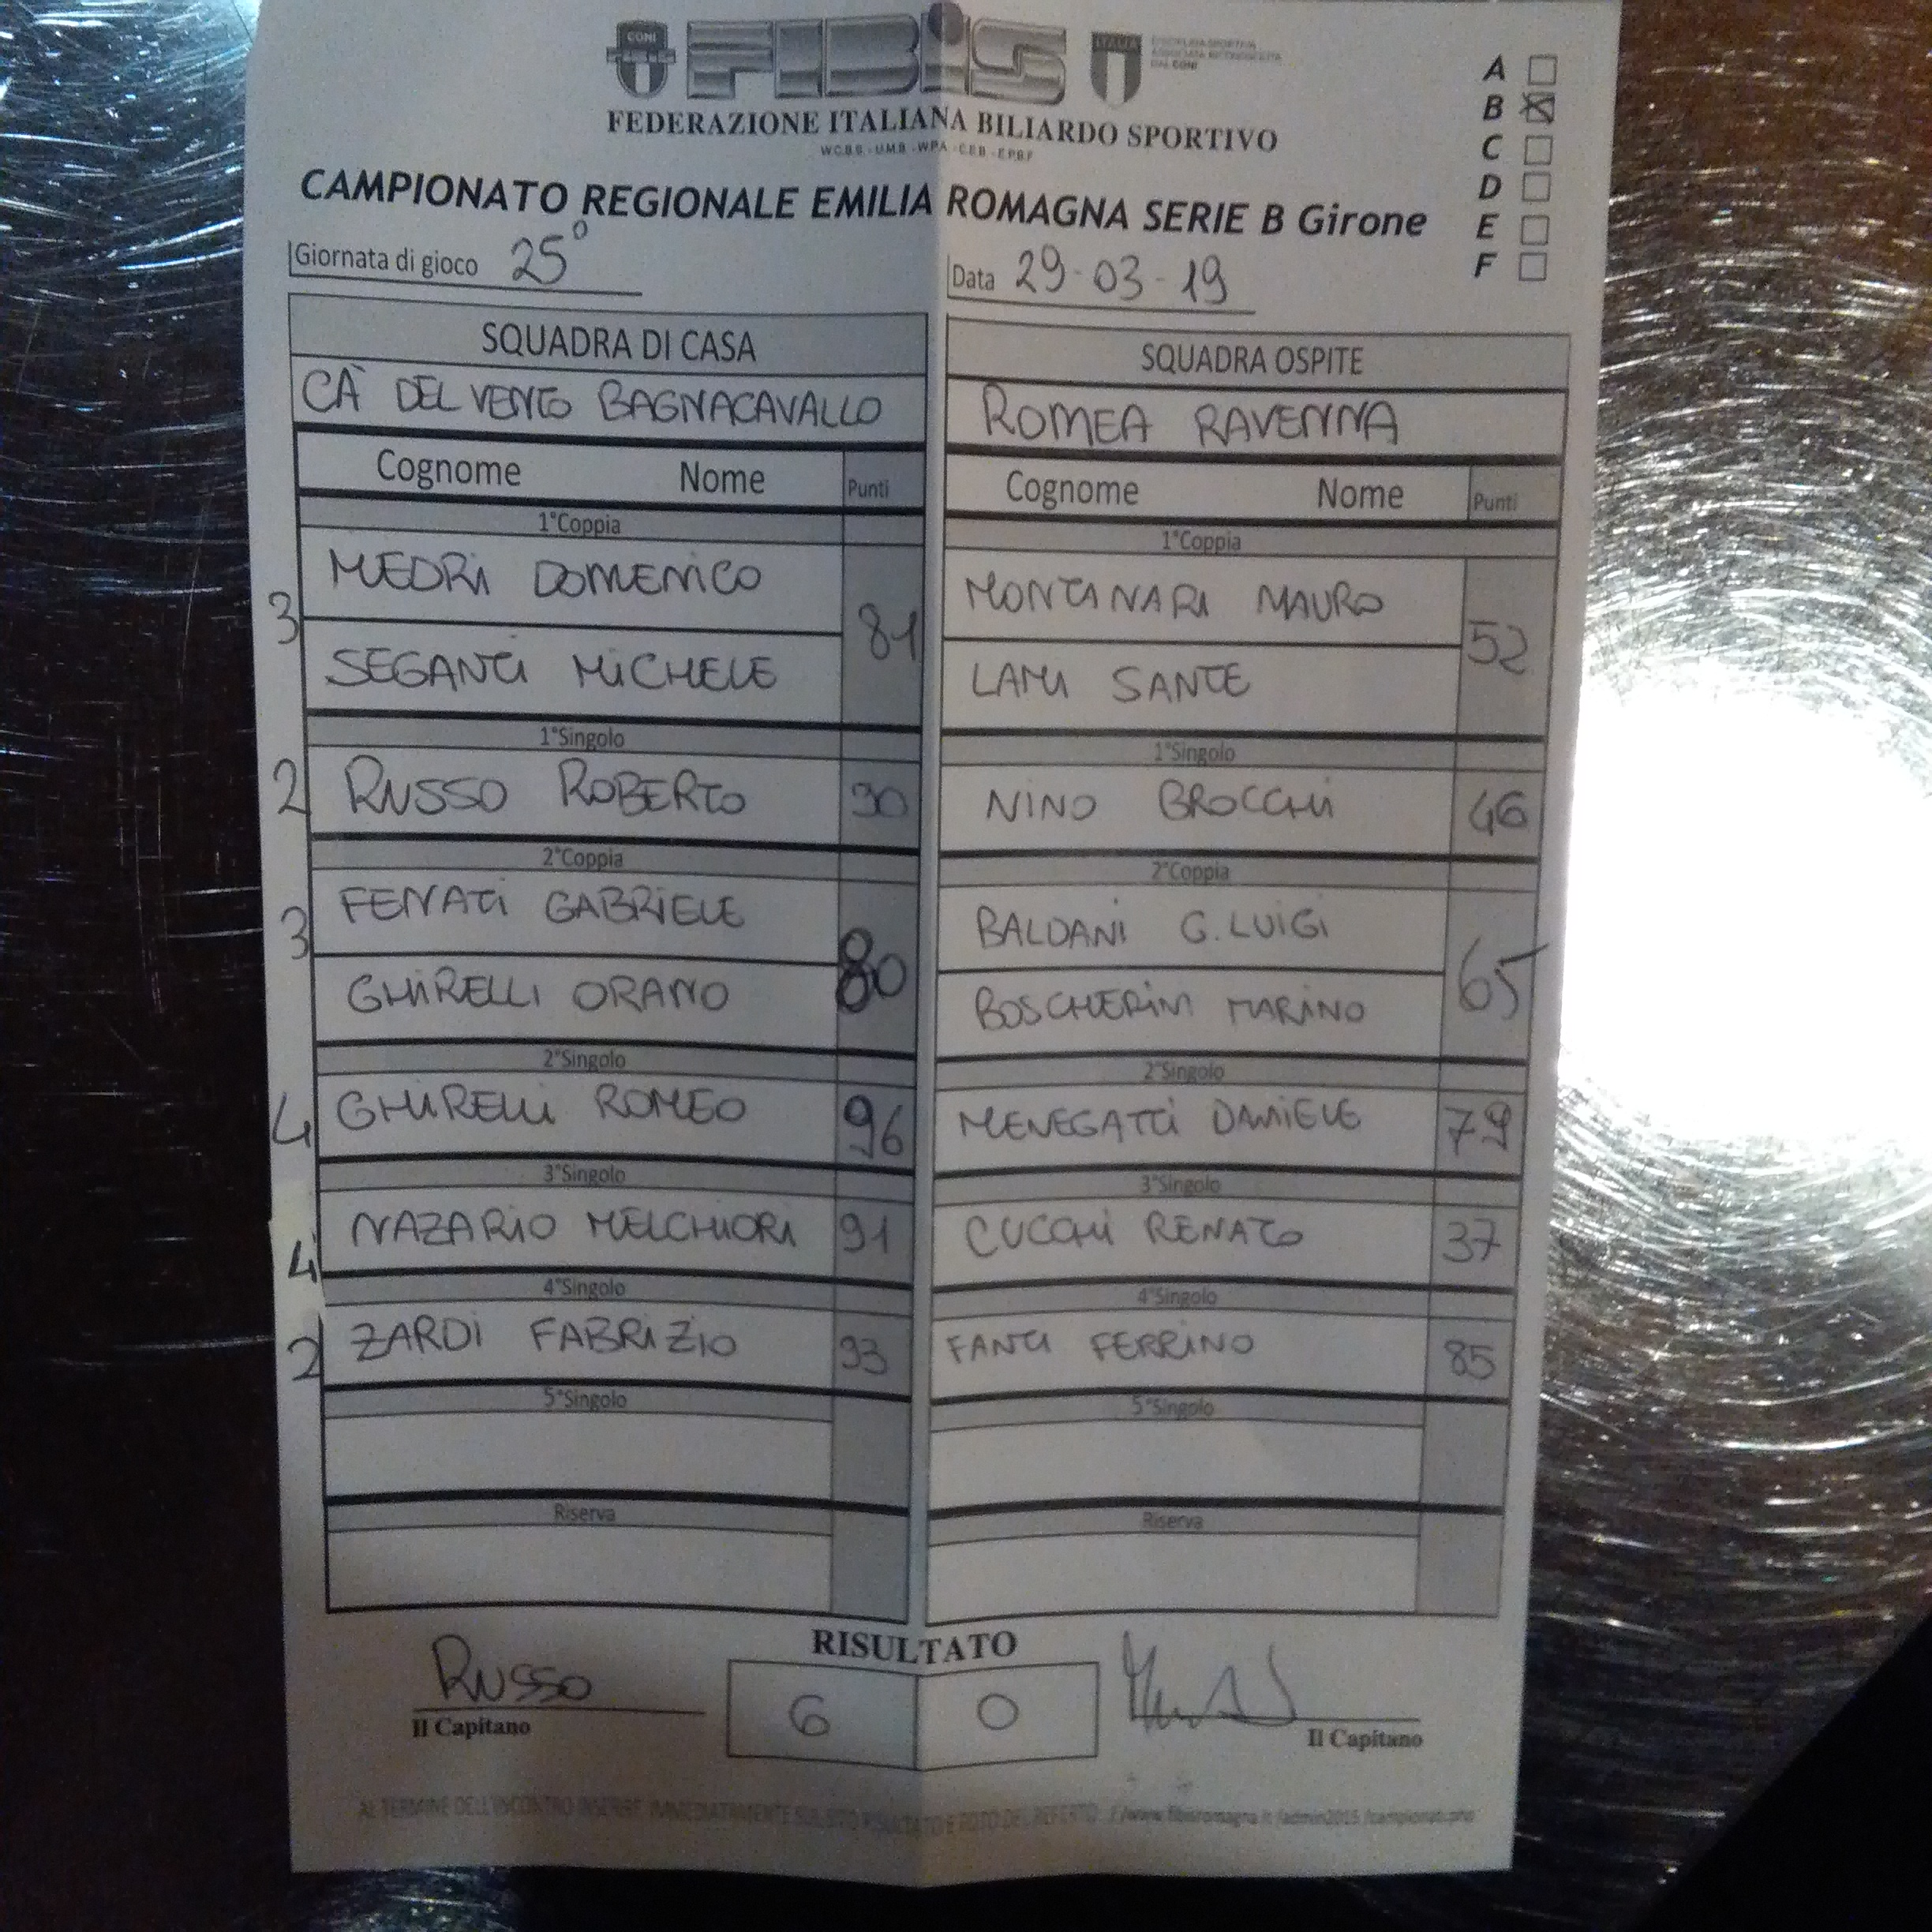 CONI
FIBiS
ITALIA
DISCIPLINA SPORTIVA
ASSOCIATA RICONOSCIUTA
DAL CONI
FEDERAZIONE ITALIANA BILIARDO SPORTIVO
W.C.B.S. - U.M.B. - W.P.A. - C.E.B. - E.P.B.F.
A
B
C
D
E
F
CAMPIONATO REGIONALE EMILIA ROMAGNA SERIE B Girone
Giornata di gioco 25°
Data 29-03-19
SQUADRA DI CASA
SQUADRA OSPITE
CÀ DEL VENTO BAGNACAVALLO
ROMEA RAVENNA
Cognome Nome Punti
Cognome Nome Punti
1°Coppia
1°Coppia
3 MEDRI DOMENICO 81
MONTANARI MAURO 52
SEGANTI MICHELE
LAMI SANTE
1°Singolo
1°Singolo
2 RUSSO ROBERTO 90
NINO BROCCHI 46
2°Coppia
2°Coppia
3 FENATI GABRIELE 80
BALDANI G.LUIGI 65
GHIRELLI ORANO
BOSCHERINI MARINO
2°Singolo
2°Singolo
4 GHIRELLI ROMEO 96
MENEGATTI DANIELE 79
3°Singolo
3°Singolo
4 NAZARIO MELCHIORI 91
CUCCHI RENATO 37
4°Singolo
4°Singolo
2 ZARDI FABRIZIO 93
FANTI FERRINO 85
5°Singolo
5°Singolo
Riserva
Riserva
RISULTATO
Russo
Il Capitano
6 0
Il Capitano
AL TERMINE DELL'INCONTRO INSERIRE IMMEDIATAMENTE SUL SITO RISULTATO E FOTO DEL REFERTO //www.fibisromagna.it/admin2015/campionati.php